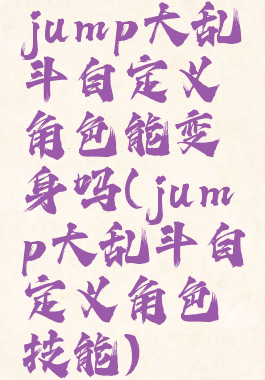 jump大乱
斗自定义
角色能变
身吗(jum
p大乱斗自
定义角色
技能)